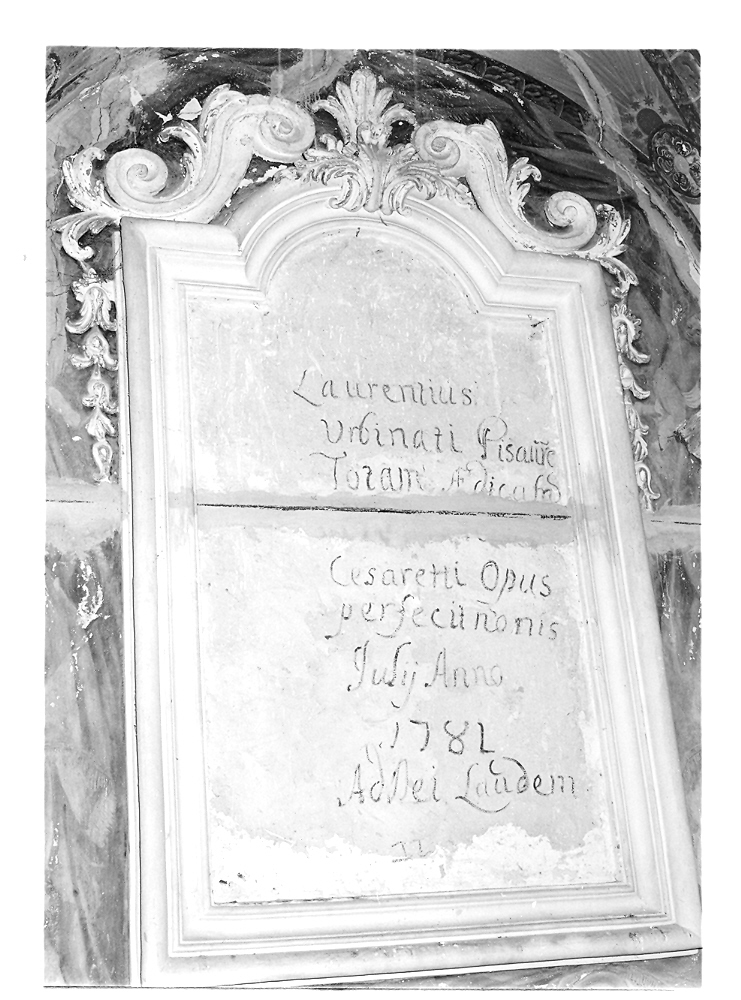 Laurentius
Urbinati Pisaur̃e
Toram Ædicab̃
Cesaretti Opus
perfecit ñonis
Julij Anno
1782
Ad Dei Laudem